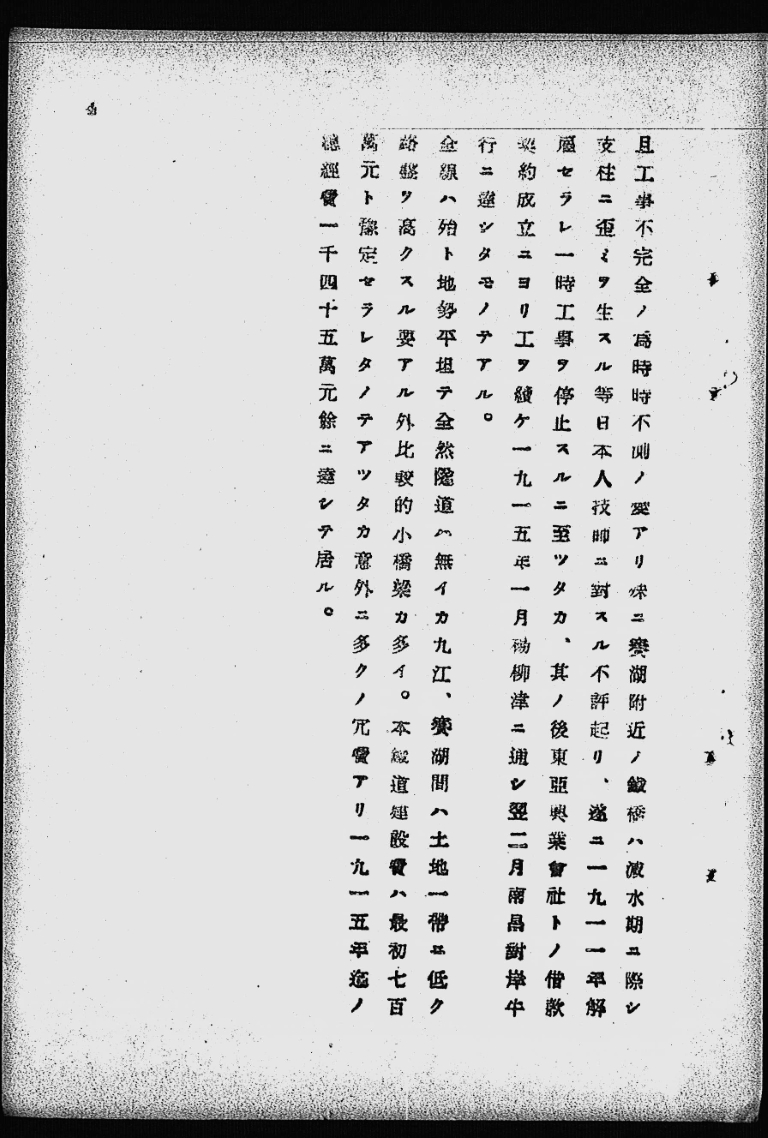 且工事不完全ノ為時時不測ノ変アリ殊ニ賽湖附近ノ鐵橋ハ減水期ニ際シ
支柱ニ歪ミヲ生スル等日本人技師ニ對スル不評起リ、遂ニ一九一一年解
雇セラレ一時工事ヲ停止スルニ至ツタカ、其ノ後東亞興業會社トノ借款
契約成立ニヨリ工ヲ續ケ一九一五年一月楊柳津ニ通シ翌二月南昌對岸牛
行ニ達シタモノテアル。
全線ハ殆ト地勢平坦テ全然隧道ハ無イカ九江、賽湖間ハ土地一帶ニ低ク
路盤ヲ高クスル要アル外比較的小橋梁カ多イ。本鐵道建設費ハ最初七百
萬元ト豫定セラレタノテアツタカ意外ニ多クノ冗費アリ一九一五年迄ノ
總經費一千四十五萬元餘ニ達シテ居ル。